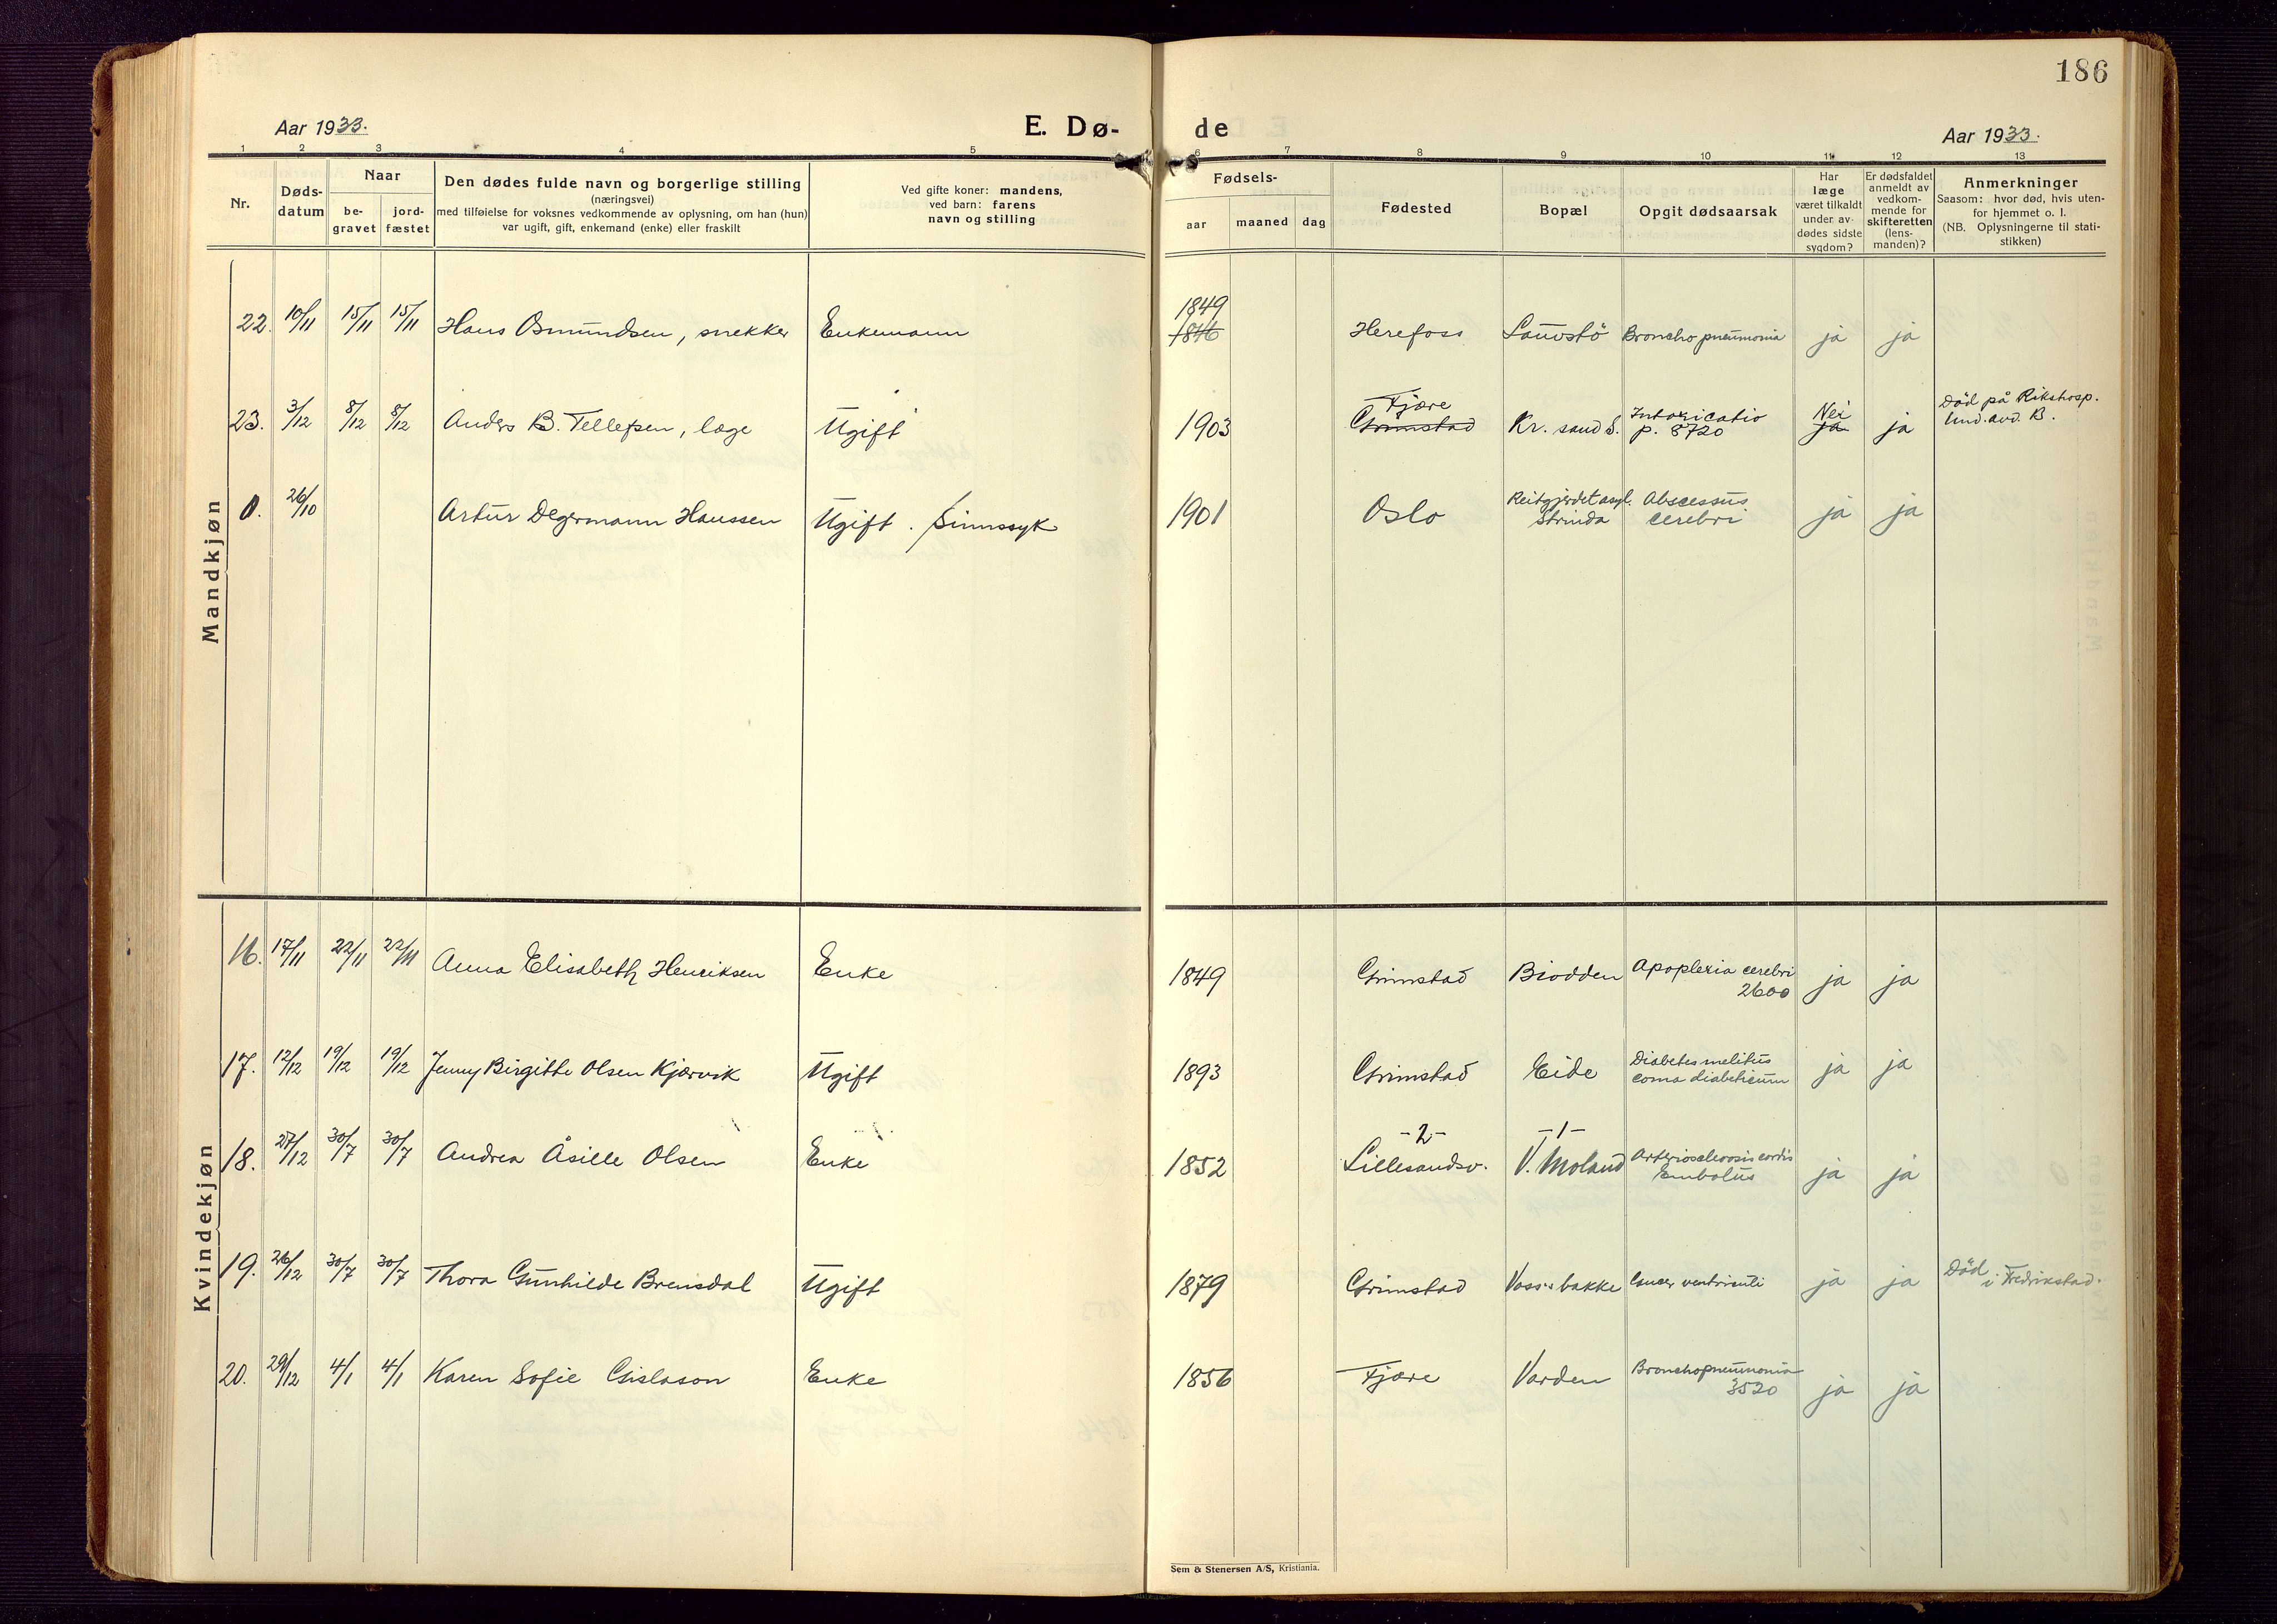 186
Aar 1933.
E. Dø-
de
Aar 1933.
1 2 3 4 5 6 7 8 9 10 11 12 13
Nr.
Døds-
datum
Naar
be-
gravet
jord-
fæstet
Den dødes fulde navn og borgerlige stilling
(næringsvei)
med tilføielse for voksnes vedkommende av oplysning, om han (hun)
var ugift, gift, enkemand (enke) eller fraskilt
Ved gifte koner: mandens,
ved barn: farens
navn og stilling
Fødsels-
aar
maaned
dag
Fødested
Bopæl
Opgit dødsaarsak
Har
læge
været tilkaldt
under av-
dødes sidste
sygdom?
Er dødsfaldet
anmeldt av
vedkom-
mende for
skifteretten
(lens-
manden)?
Anmerkninger
Saasom: hvor død, hvis uten-
for hjemmet o. l.
(NB. Oplysningerne til stati-
stikken)
Mandkjøn
1849
22. 10/11 15/11 15/11 Hans Osmundsen, snekker Enkemann 1846 Herefoss Lauvstö Broncho pneumonia ja ja
Fjære Intoxicatio Nei Död på Rikshosp.
23. 3/12 8/12 8/12 Anders B. Tellefsen, læge Ugift 1903 Grimstad Kr. sand S. p. 8720 ja ja Und. avd. B.
Reitgjerdet asyl. Abscessus
0. 26/10 Artur Degermann Hanssen Ugift. Sinnssyk 1901 Oslo Strinda cerebri ja ja
Kvindekjøn
16. 17/11 22/11 22/11 Anna Elisabeth Henriksen Enke 1849 Grimstad Biodden Apoplexia cerebri ja ja
2600
17. 12/12 19/12 19/12 Jenny Birgitte Olsen Kjørvik Ugift 1893 Grimstad Eide Diabetes melitus ja ja
coma diabeticum
-2- -1-
18. 27/12 30/7 30/7 Andrea Åsille Olsen Enke 1852 Lillesandsv. V. Moland Arteriosclerosis cordis ja ja
Embolus
19. 26/12 30/7 30/7 Thora Gunhilde Brensdal Ugift 1879 Grimstad Voss's bakke Cancer ventriculi ja ja Död
i Fredrikstad.
20. 29/12 4/1 4/1 Karen Sofie Gislason Enke 1856 Fjære Varden Bronchopneumonia ja ja
3520
Sem & Stenersen A/S, Kristiania.